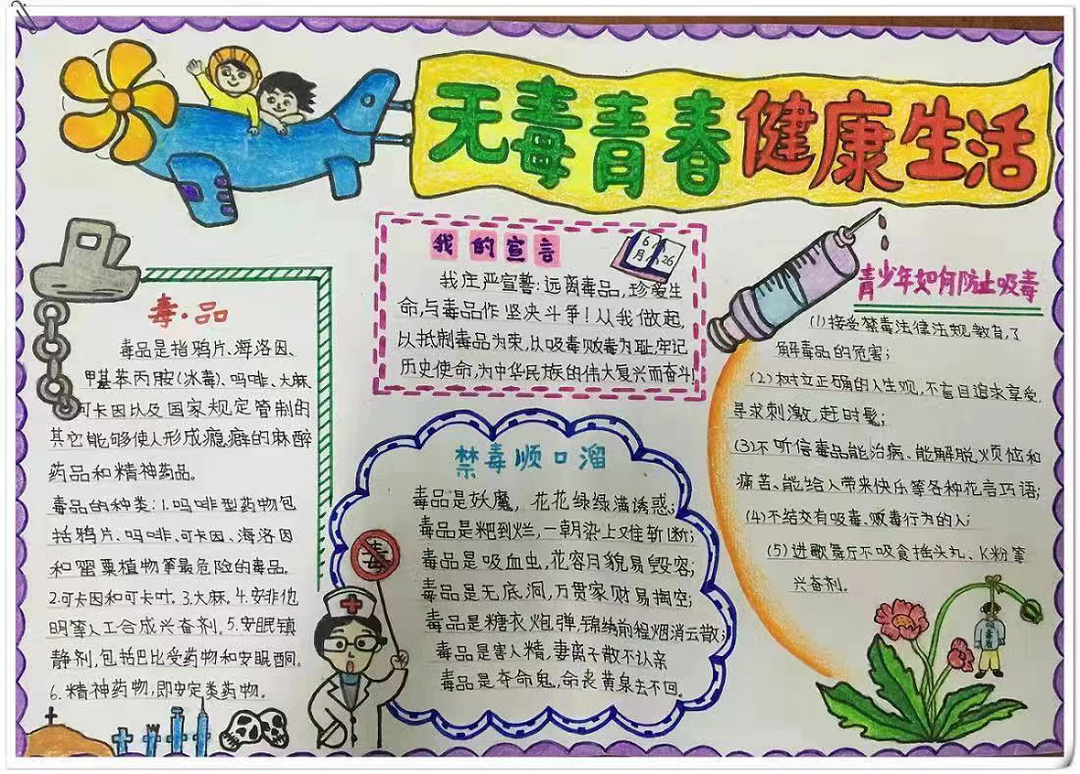 无毒青春健康生活
我的宣言
6月 26
我庄严宣誓:远离毒品,珍爱生
命,与毒品作坚决斗争!从我做起,
以抵制毒品为荣,以吸毒贩毒为耻,牢记
历史使命,为中华民族的伟大复兴而奋斗!
毒·品
毒品是指鸦片、海洛因、
甲基苯丙胺(冰毒)、吗啡、大麻、
可卡因以及国家规定管制的
其它能够使人形成瘾癖的麻醉
药品和精神药品。
毒品的种类:1.吗啡型药物包
括鸦片、吗啡、可卡因、海洛因
和罂粟植物等最危险的毒品。
2.可卡因和可卡叶。3.大麻。4.安非他
明等人工合成兴奋剂。5.安眠镇
静剂,包括巴比妥药物和安眠酮。
6.精神药物,即安定类药物。
禁毒顺口溜
毒品是妖魔,花花绿绿满诱惑;
毒品是粑到烂,一朝染上难斩断;
毒品是吸血虫,花容月貌易毁容;
毒品是无底洞,万贯家财易掏空;
毒品是糖衣炮弹,锦绣前程烟消云散;
毒品是害人精,妻离子散不认亲
毒品是夺命鬼,命丧黄泉去不回。
毒
青少年如何防止吸毒
(1)接受禁毒法律法规教育,了
解毒品的危害;
(2)树立正确的人生观,不盲目追求享受,
寻求刺激,赶时髦;
(3)不听信毒品能治病、能解脱烦恼和
痛苦、能给人带来快乐等各种花言巧语;
(4)不结交有吸毒、贩毒行为的人;
(5)进歌舞厅不吸食摇头丸、K粉等
兴奋剂。
吸毒者